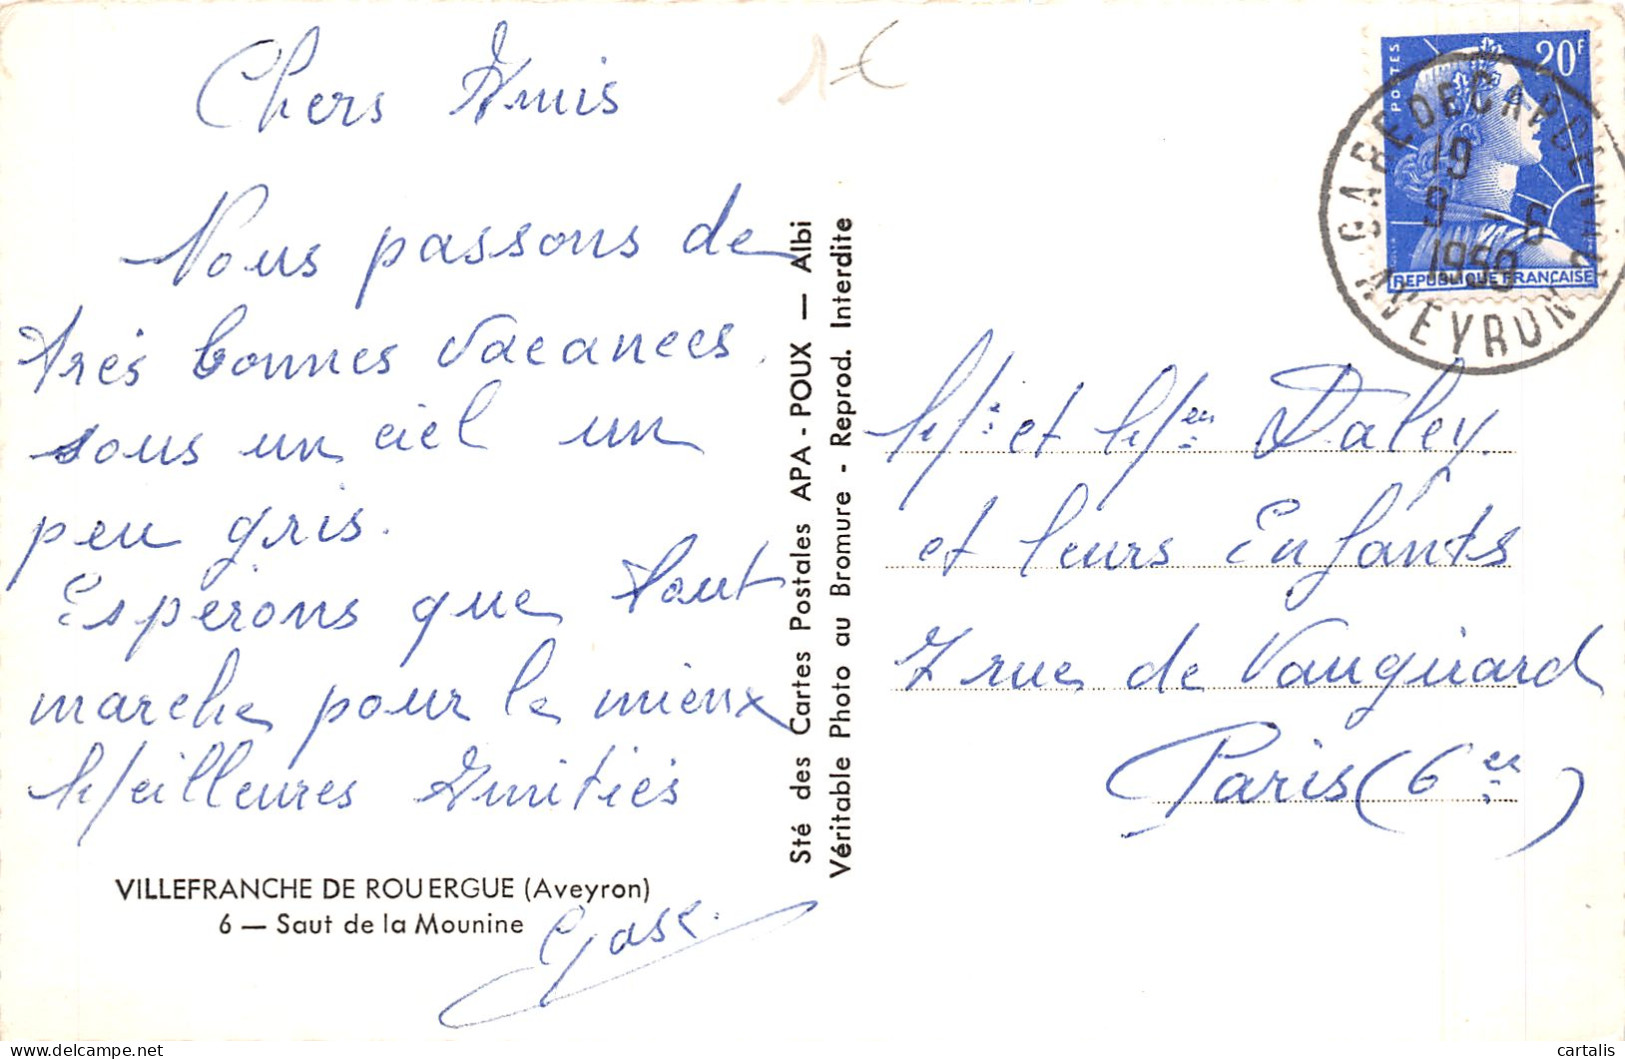 1 €
Chers Amis
Nous passons de
très bonnes vacances
sous un ciel un
peu gris.
Espérons que tout
marche pour le mieux
Meilleures Amitiés
VILLEFRANCHE DE ROUERGUE (Aveyron)
6 — Saut de la Mounine
Sté des Cartes Postales APA - POUX — Albi
Véritable Photo au Bromure - Reprod. Interdite
POSTES
20F
REPUBLIQUE FRANÇAISE
GARE DE CAPDENAC
19
9 - 6
AVEYRON
Mr et Mme Daley
et leurs Enfants
7 rue de Vaugirard
Paris (6e)
cartalis